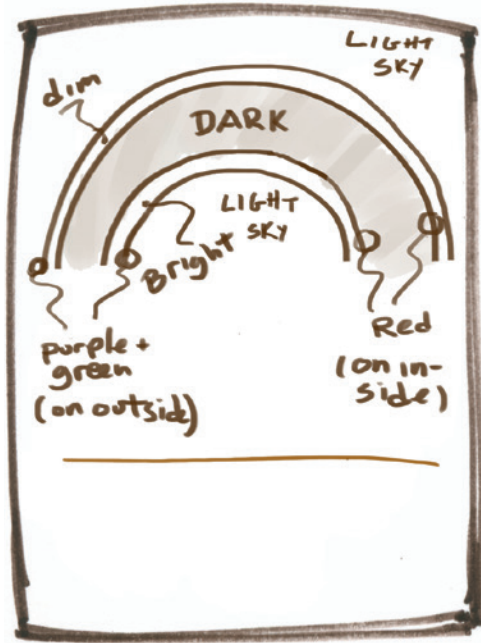 LIGHT
SKY
dim
DARK
LIGHT
SKY
Bright
purple +
green
(on outside)
Red
(on in-
side)